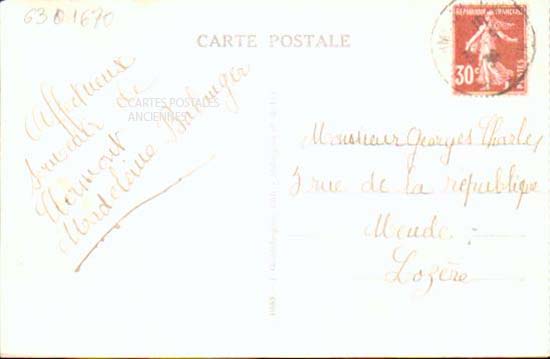 63 0 1670
CARTE POSTALE
REPUBLIQUE FRANCAISE
30c
POSTES
CARTES POSTALES
ANCIENNES
Affectueux
souvenir de
Clermont
Madeleine Boulanger
Monsieur Georges Charles
3 rue de la république
Mende.
Lozère